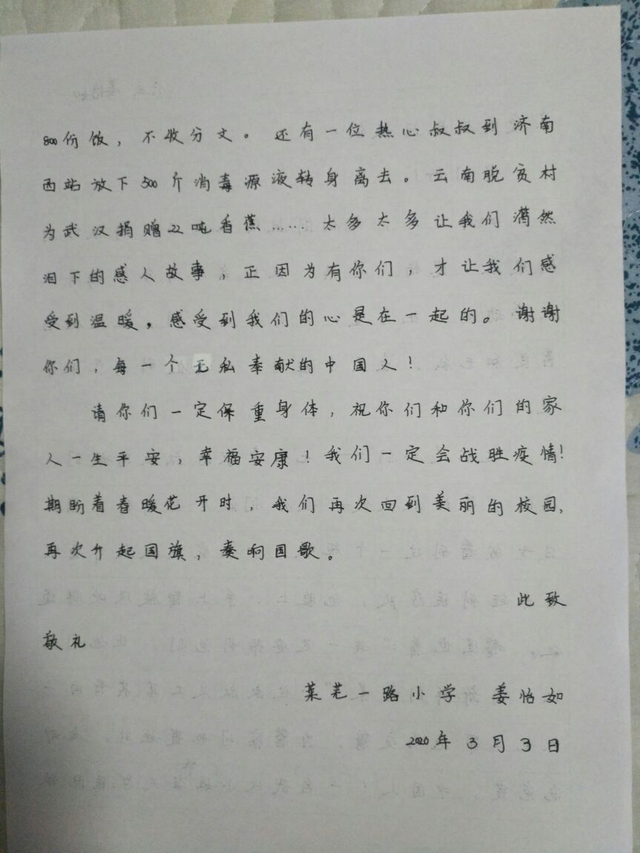 800份饭，不收分文。还有一位热心叔叔到济南
西站放下500斤消毒源液转身离去。云南脱贫村
为武汉捐赠22吨香蕉……太多太多让我们潸然
泪下的感人故事，正因为有你们，才让我们感
受到温暖，感受到我们的心是在一起的。谢谢
你们，每一个无私奉献的中国人！
请你们一定保重身体，祝你们和你们的家
人一生平安，幸福安康！我们一定会战胜疫情！
期盼着春暖花开时，我们再次回到美丽的校园，
再次升起国旗，奏响国歌。
此致
敬礼
莱芜一路小学 姜怡如
2020年3月3日